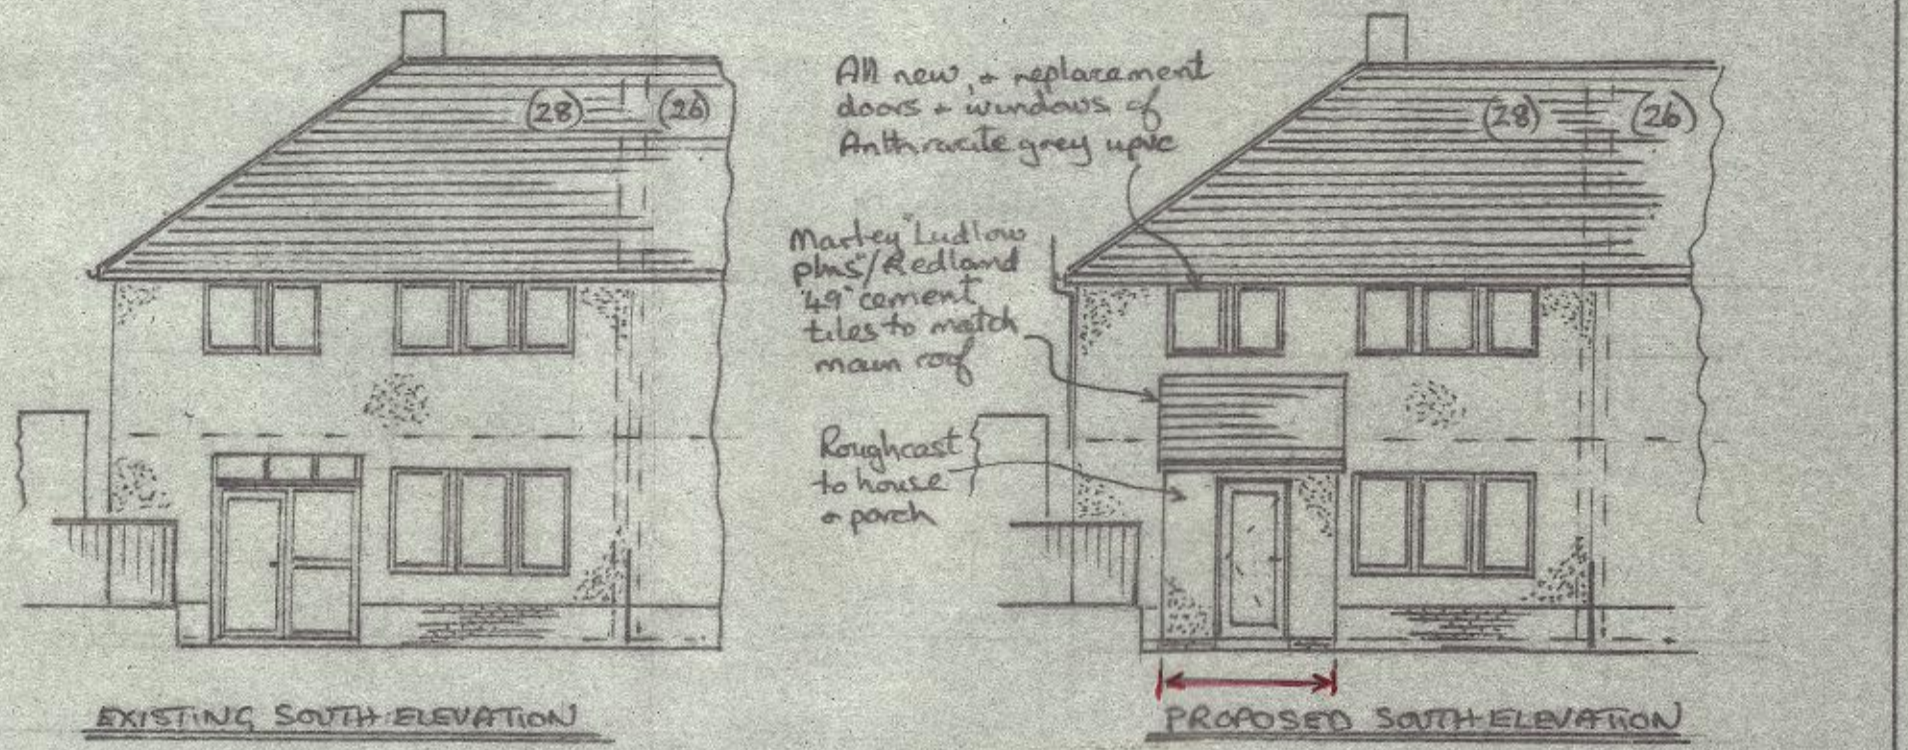 (28) (26)
EXISTING SOUTH ELEVATION
All new, + replacement
doors + windows of
Anthracite grey upvc
Marley "Ludlow
plus"/Redland
"49" cement
tiles to match
main roof
Roughcast
to house
+ porch
(28) (26)
PROPOSED SOUTH ELEVATION